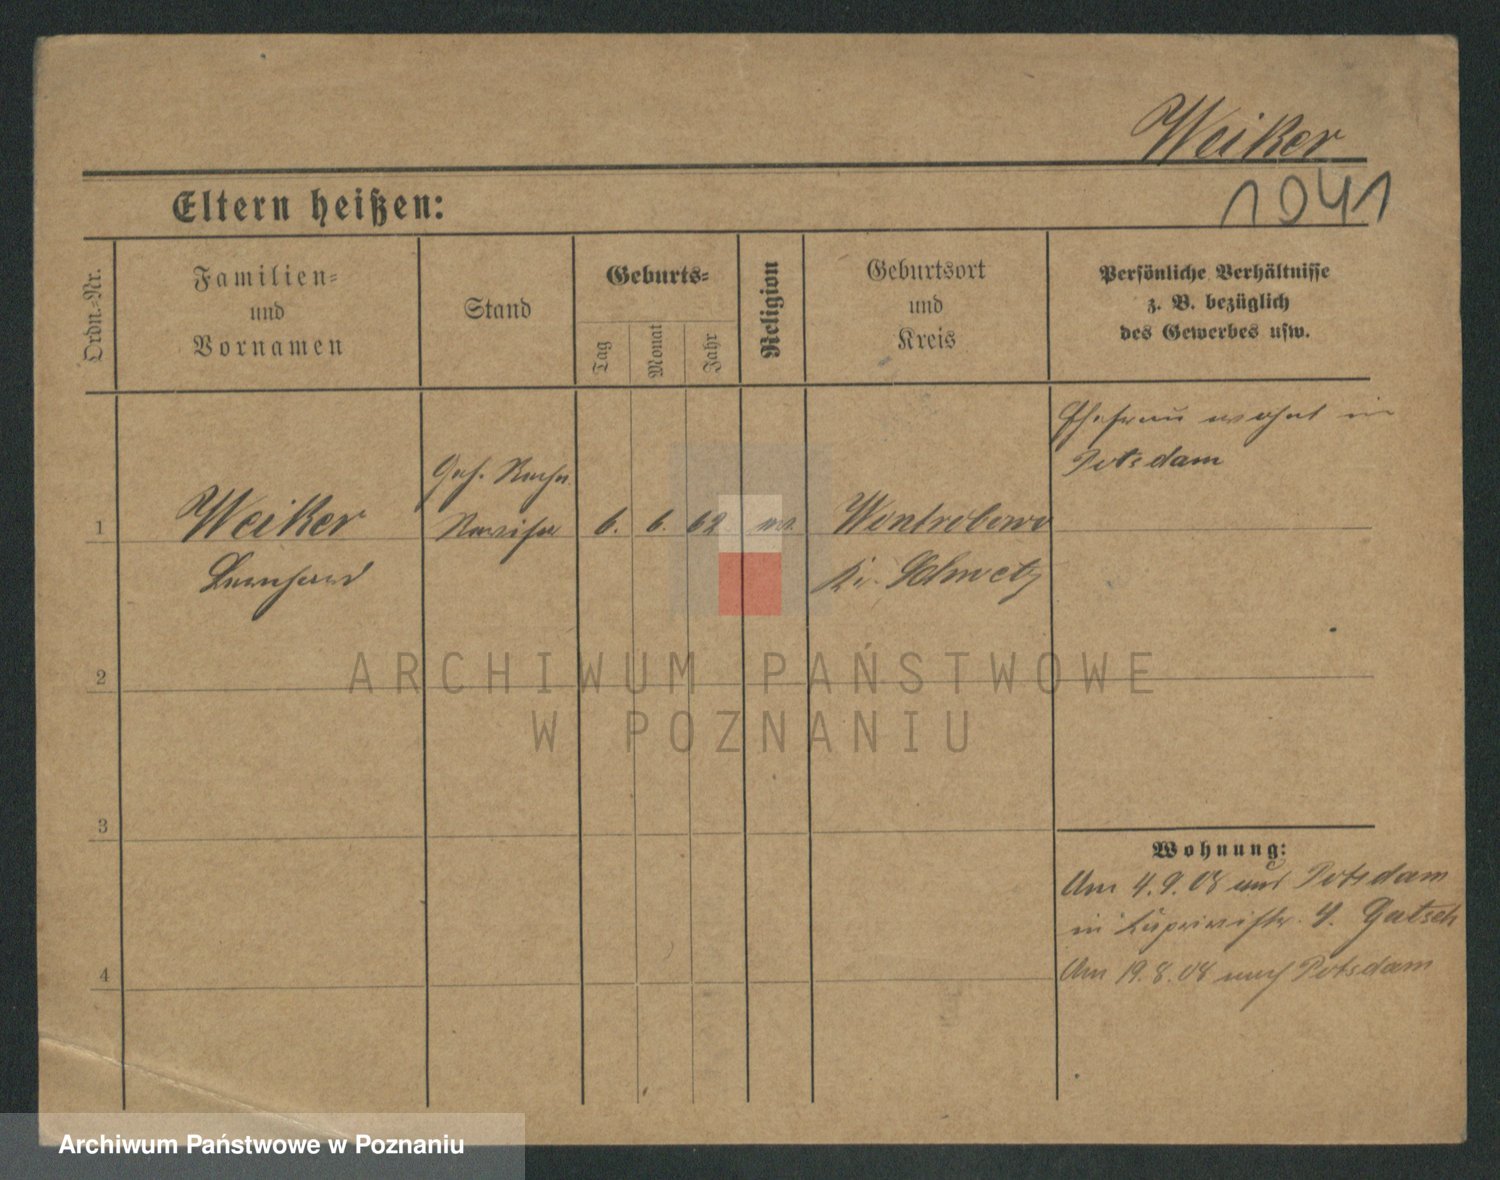 Weiker
1041
Eltern heißen:
Ordn.-Nr.
Familien-
und
Vornamen
Stand
Geburts-
Tag
Monat
Jahr
Religion
Geburtsort
und
Kreis
Persönliche Verhältnisse
z. B. bezüglich
des Gewerbes usw.
Ehefrau wohnt in
Potsdam
Geh. Rechn.
1 Weiker Revisor 6. 6. 62 Wentrobowo
Bernhard Kr. Schwetz
2
3
4
Wohnung:
Am 4.9.08 aus Potsdam
in b. Gatsch
Am 19.8.08 nach Potsdam
ARCHIWUM PAŃSTWOWE
W POZNANIU
Archiwum Państwowe w Poznaniu